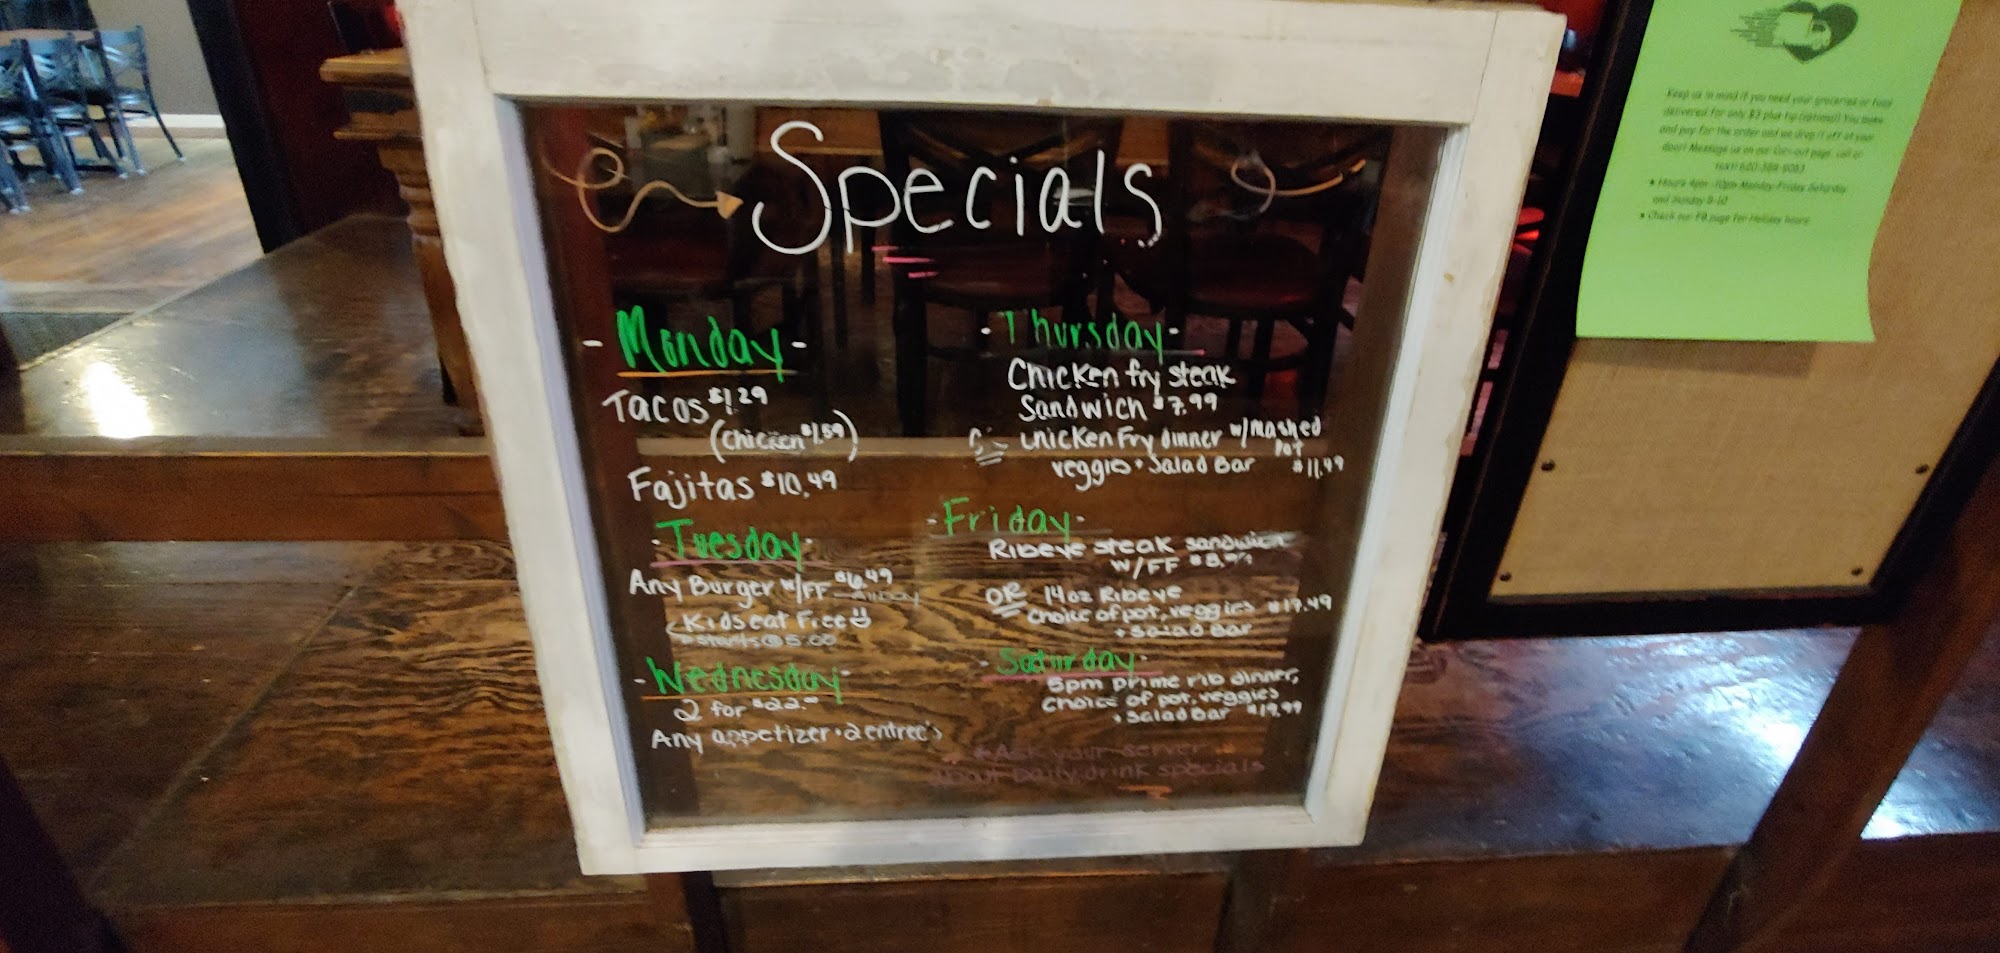 Specials
- Monday -
Tacos $1.29
(chicken $1.59)
Fajitas $10.49
- Tuesday -
Any Burger w/FF $6.49
All Day
Kids eat Free
starts @ 5:00
- Wednesday -
2 for $22.
Any appetizer + 2 entree's
- Thursday -
Chicken fry steak
Sandwich $7.99
Chicken Fry dinner w/mashed
pot
veggie + Salad Bar $11.49
- Friday -
Ribeye steak sandwich
w/FF
OR 14oz Ribeye
choice of pot, veggies
+ Salad Bar
- Saturday -
5pm prime rib dinner,
choice of pot, veggies
+ Salad Bar $19.99
* Ask your server
about Daily drink specials
Keep us in mind if you need your groceries or food
delivered for only $3 plus tip (optional) You make
and pay for the order and we drop it off at your
door! Message us on our page, call or
• Hours 4pm-10pm Monday-Friday Saturday
and Sunday
• Check our FB page for Holiday hours